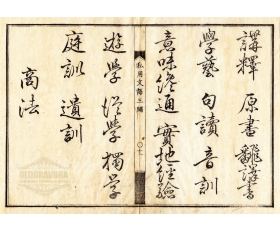 講釋 原書 飜譯書
學藝 句讀 音訓
意味 融通 實地經驗
私用文語三編 〇七
遊學 從學 獨学
庭訓 遺訓
商法
OLDGRAVURA